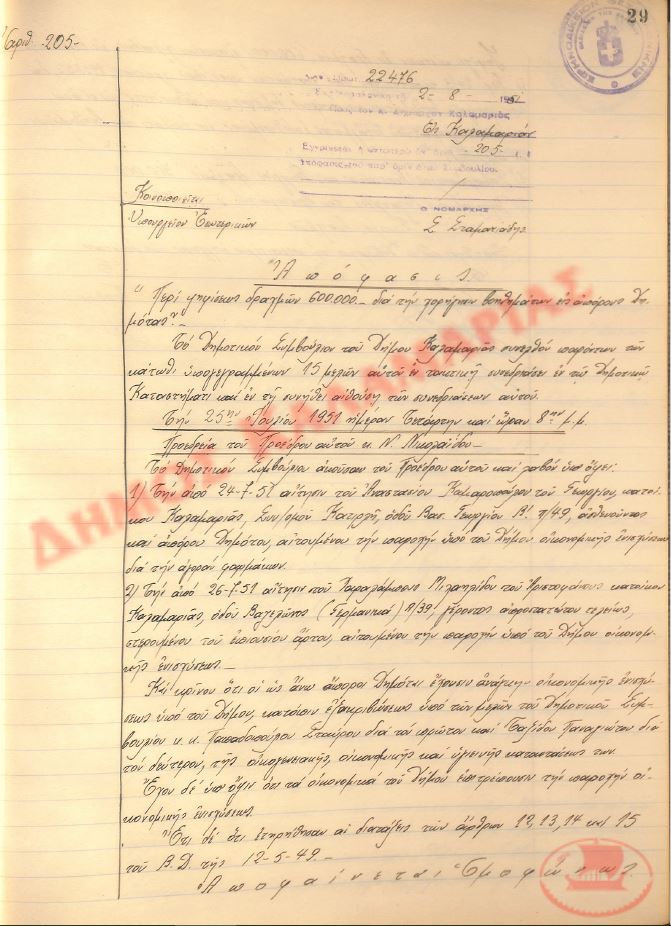 29
Ἀριθ. 205-
22476
2 - 8 - 1951
Πρὸς τὸν κ. Δήμαρχον Καλαμαριᾶς
Εἰς Καλαμαριὰν
Ἐγκρίνεται ἡ
205
Ο ΝΟΜΑΡΧΗΣ
Σ. Σταματιάδης
Κοινοποιεῖται
Ὑπουργεῖον Ἐσωτερικῶν
Ἀπόφασις.
"Περὶ ψηφίσεως δραχμῶν 600.000 - διὰ τὴν χορήγησιν βοηθημάτων εἰς ἀπόρους Δη-
μότας".
Τὸ Δημοτικὸν Συμβούλιον τοῦ Δήμου Καλαμαριᾶς συνελθὸν παρόντων τῶν
κάτωθι ὑπογεγραμμένων 15 μελῶν αὐτοῦ ἐν τακτικῇ συνεδριάσει ἐν τῷ Δημοτικῷ
Καταστήματι καὶ ἐν τῇ συνήθει αἰθούσῃ τῶν συνεδριάσεων αὐτοῦ.
Τὴν 25ην Ἰουλίου 1951 ἡμέραν Τετάρτην καὶ ὥραν 8ην μ.μ.
Προεδρεία τοῦ Προέδρου αὐτοῦ κ. Ν. Νικολαΐδου
Τὸ Δημοτικὸν Συμβούλιον ἀκοῦσαν τοῦ Προέδρου αὐτοῦ καὶ λαβὸν ὑπ' ὄψει:
1) Τὴν ἀπὸ 24-7-51 αἴτησιν τοῦ Ἀναστασίου Καμαροπούλου τοῦ Γεωργίου, κατοί-
κου Καλαμαριᾶς, Συν/σμοῦ Κατιρλῆ, ὁδοῦ Βασ. Γεωργίου Β' π/49, ἀσθενοῦντος
καὶ ἀπόρου Δημότου, αἰτουμένου τὴν παροχὴν ὑπὸ τοῦ Δήμου οἰκονομικῆς ἐνισχύσεως
διὰ τὴν ἀγορὰν φαρμάκων.
2) Τὴν ἀπὸ 26-7-51 αἴτησιν τοῦ Χαραλάμπους Μιχαηλίδου τοῦ Ἀριστοφάνους κατοίκου
Καλαμαριᾶς, ὁδοῦ (Γερμανικὰ) Π/39 γέροντος ἀπροστατεύτου τελείως,
στερουμένου τοῦ ἐπιουσίου ἄρτου, αἰτουμένου τὴν παροχὴν ὑπὸ τοῦ Δήμου οἰκονομι-
κῆς ἐνισχύσεως.-
Καὶ κρίνον ὅτι οἱ ὡς ἄνω ἄποροι Δημόται ἔχουσιν ἀνάγκην οἰκονομικῆς ἐνισχύ-
σεως ὑπὸ τοῦ Δήμου, κατόπιν ἐξακριβώσεως ὑπὸ τῶν μελῶν τοῦ Δημοτικοῦ Συμ-
βουλίου κ.κ. Παπαδοπούλου Σταύρου διὰ τὸν πρῶτον καὶ Παναγιώτου διὰ
τὸν δεύτερον, τῆς οἰκογενειακῆς, οἰκονομικῆς καὶ ὑγιεινῆς καταστάσεώς των
Ἔχον δὲ ὑπ' ὄψει ὅτι τὰ οἰκονομικὰ τοῦ Δήμου ἐπιτρέπουσιν τὴν παροχὴν οἰ-
κονομικῆς ἐνισχύσεως.
Ἔτι δὲ ὅτι ἐτηρήθησαν αἱ διατάξεις τῶν ἄρθρων 12, 13, 14 καὶ 15
τοῦ Β.Δ. τῆς 12-5-49.-
Ἀποφαίνεται Ὁμοφώνως.
ΔΗΜΟΣ ΚΑΛΑΜΑΡΙΑΣ